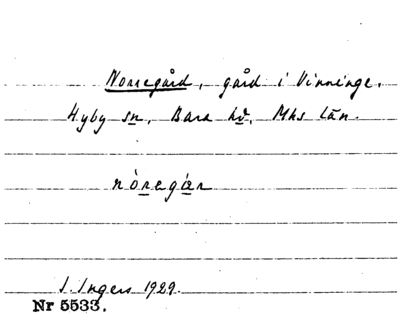 Norregård, gård i Vinninge.
Hyby sn, Bara hd, Mhs län.
nòregȧr
I. Ingers 1929.
Nr 5533.